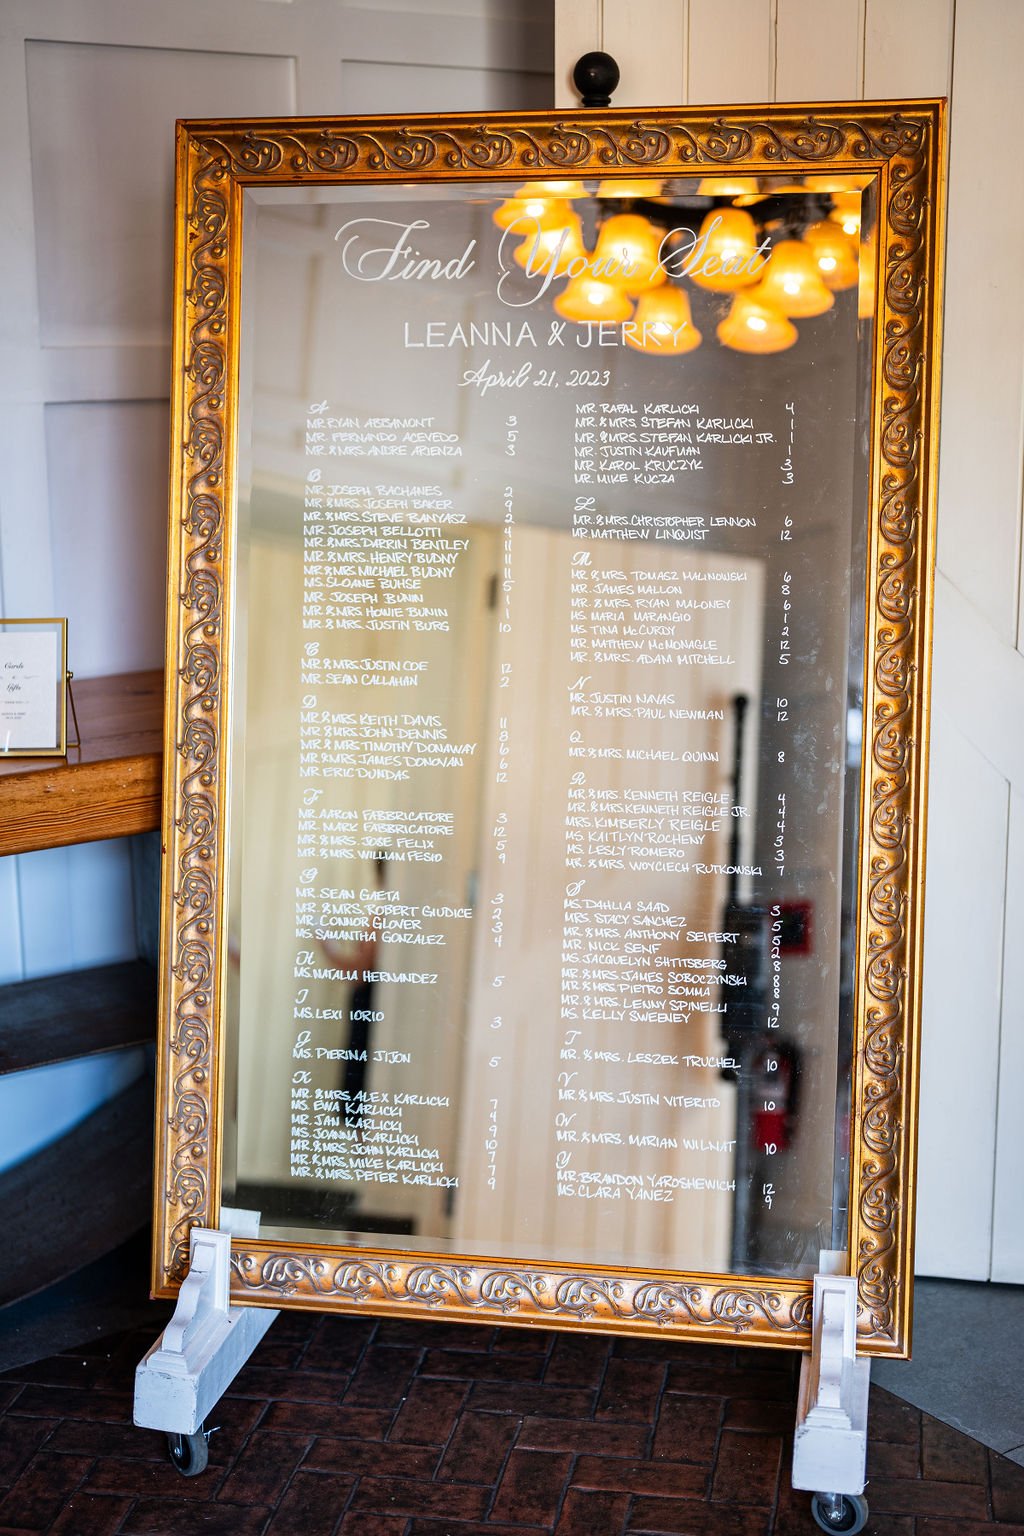 Find Your Seat
LEANNA & JERRY
April 21, 2023
A
MR. RYAN ABBAMONT 3
MR. FERNANDO ACEVEDO 5
MR. & MRS. ANDRE ARIENZA 3
B
MR. JOSEPH BACHANES 2
MR. & MRS. JOSEPH BAKER 9
MR. & MRS. STEVE BANYASZ 2
MR. JOSEPH BELLOTTI 4
MR. & MRS. DARRIN BENTLEY 11
MR. & MRS. HENRY BUDNY 11
MR. & MRS. MICHAEL BUDNY 11
MS. SLOANE BUHSE 5
MR. JOSEPH BUNIN 1
MR. & MRS. HOWIE BUNIN 1
MR. & MRS. JUSTIN BURG 10
C
MR. & MRS. JUSTIN COE 12
MR. SEAN CALLAHAN 2
D
MR. & MRS. KEITH DAVIS 11
MR. & MRS. JOHN DENNIS 8
MR. & MRS. TIMOTHY DONAWAY 6
MR. & MRS. JAMES DONOVAN 6
MR. ERIC DUMDAS 12
F
MR. AARON FABBRICATORE 3
MR. MARK FABBRICATORE 12
MR. & MRS. JOSE FELIX 5
MR. & MRS. WILLIAM FESIO 9
G
MR. SEAN GAETA 3
MR. & MRS. ROBERT GIUDICE 2
MR. CONNOR GLOVER 3
MS. SAMANTHA GONZALEZ 4
H
MS. NATALIA HERNANDEZ 5
I
MS. LEXI IORIO 3
J
MS. PIERINA JIJON 5
K
MR. & MRS. ALEX KARLICKI 7
MS. EWA KARLICKI 4
MR. JAN KARLICKI 9
MS. JOANNA KARLICKI 10
MR. & MRS. JOHN KARLICKI 7
MR. & MRS. MIKE KARLICKI 7
MR. & MRS. PETER KARLICKI 9
MR. RAFAL KARLICKI 4
MR. & MRS. STEFAN KARLICKI 1
MR. & MRS. STEFAN KARLICKI JR. 1
MR. JUSTIN KAUFMAN 1
MR. KAROL KRUCZYK 3
MR. MIKE KUCZA 3
L
MR. & MRS. CHRISTOPHER LENNON 6
MR. MATTHEW LINQUIST 12
M
MR. & MRS. TOMASZ MALINOWSKI 6
MR. JAMES MALLON 8
MR. & MRS. RYAN MALONEY 6
MS. MARIA MARANGIO 1
MS. TINA McCURDY 2
MR. MATTHEW McMONAGLE 12
MR. & MRS. ADAM MITCHELL 5
N
MR. JUSTIN NAVAS 10
MR. & MRS. PAUL NEWMAN 12
Q
MR. & MRS. MICHAEL QUINN 8
R
MR. & MRS. KENNETH REIGLE 4
MR. & MRS. KENNETH REIGLE JR. 4
MRS. KIMBERLY REIGLE 4
MS. KAITLYN ROCHENY 3
MS. LESLY ROMERO 3
MR. & MRS. WOYCIECH RUTKOWSKI 7
S
MS. DAHLIA SAAD 3
MRS. STACY SANCHEZ 5
MR. & MRS. ANTHONY SEIFERT 5
MR. NICK SENF 2
MS. JACQUELYN SHTITSBERG 8
MR. & MRS. JAMES SOBOCZYNSKI 8
MR. & MRS. PIETRO SOMMA 8
MR. & MRS. LENNY SPINELLI 9
MS. KELLY SWEENEY 12
T
MR. & MRS. LESZEK TRUCHEL 10
V
MR. & MRS. JUSTIN VITERITO 10
W
MR. & MRS. MARIAN WILNAT 10
Y
MR. BRANDON YAROSHEWICH 12
MS. CLARA YANEZ 9
Cards
Gifts